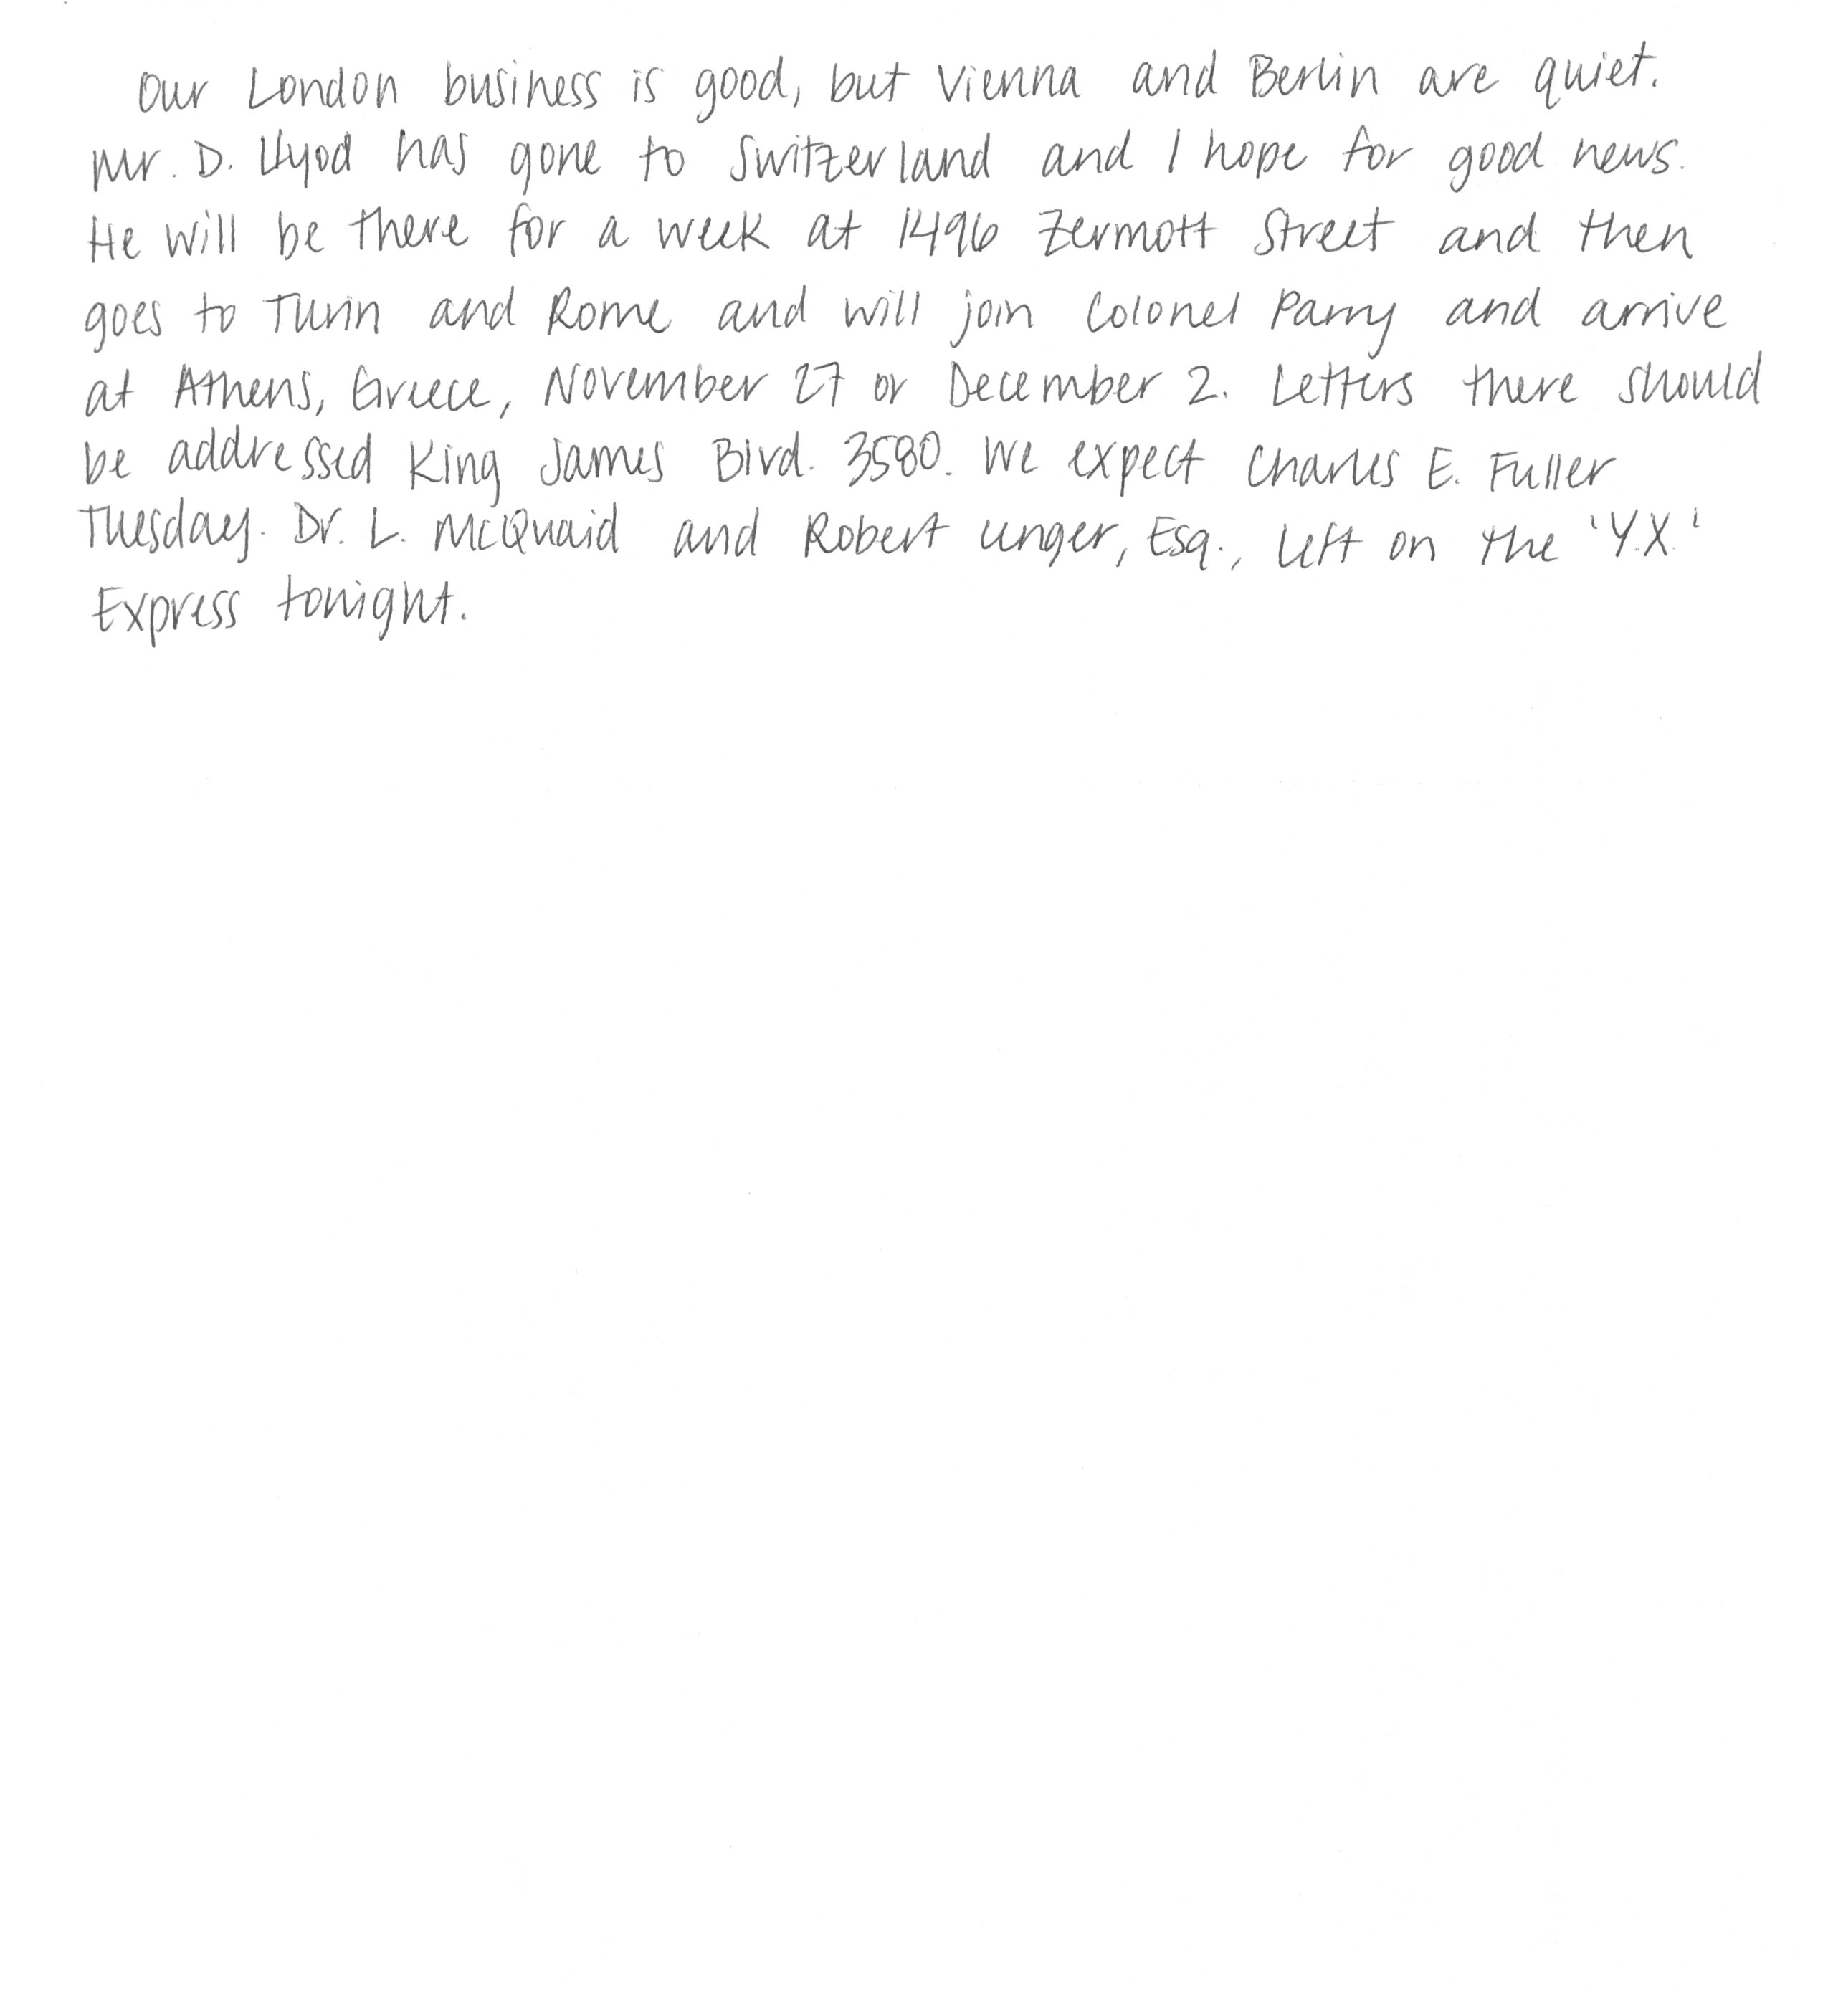 Our London business is good, but Vienna and Berlin are quiet.
Mr. D. Llyod has gone to Switzerland and I hope for good news.
He will be there for a week at 1496 Zermott Street and then
goes to Turin and Rome and will join Colonel Parry and arrive
at Athens, Greece, November 27 or December 2. Letters there should
be addressed King James Blvd. 3580. We expect Charles E. Fuller
Tuesday. Dr. L. McQuaid and Robert Unger, Esq., left on the 'Y.X.'
Express tonight.